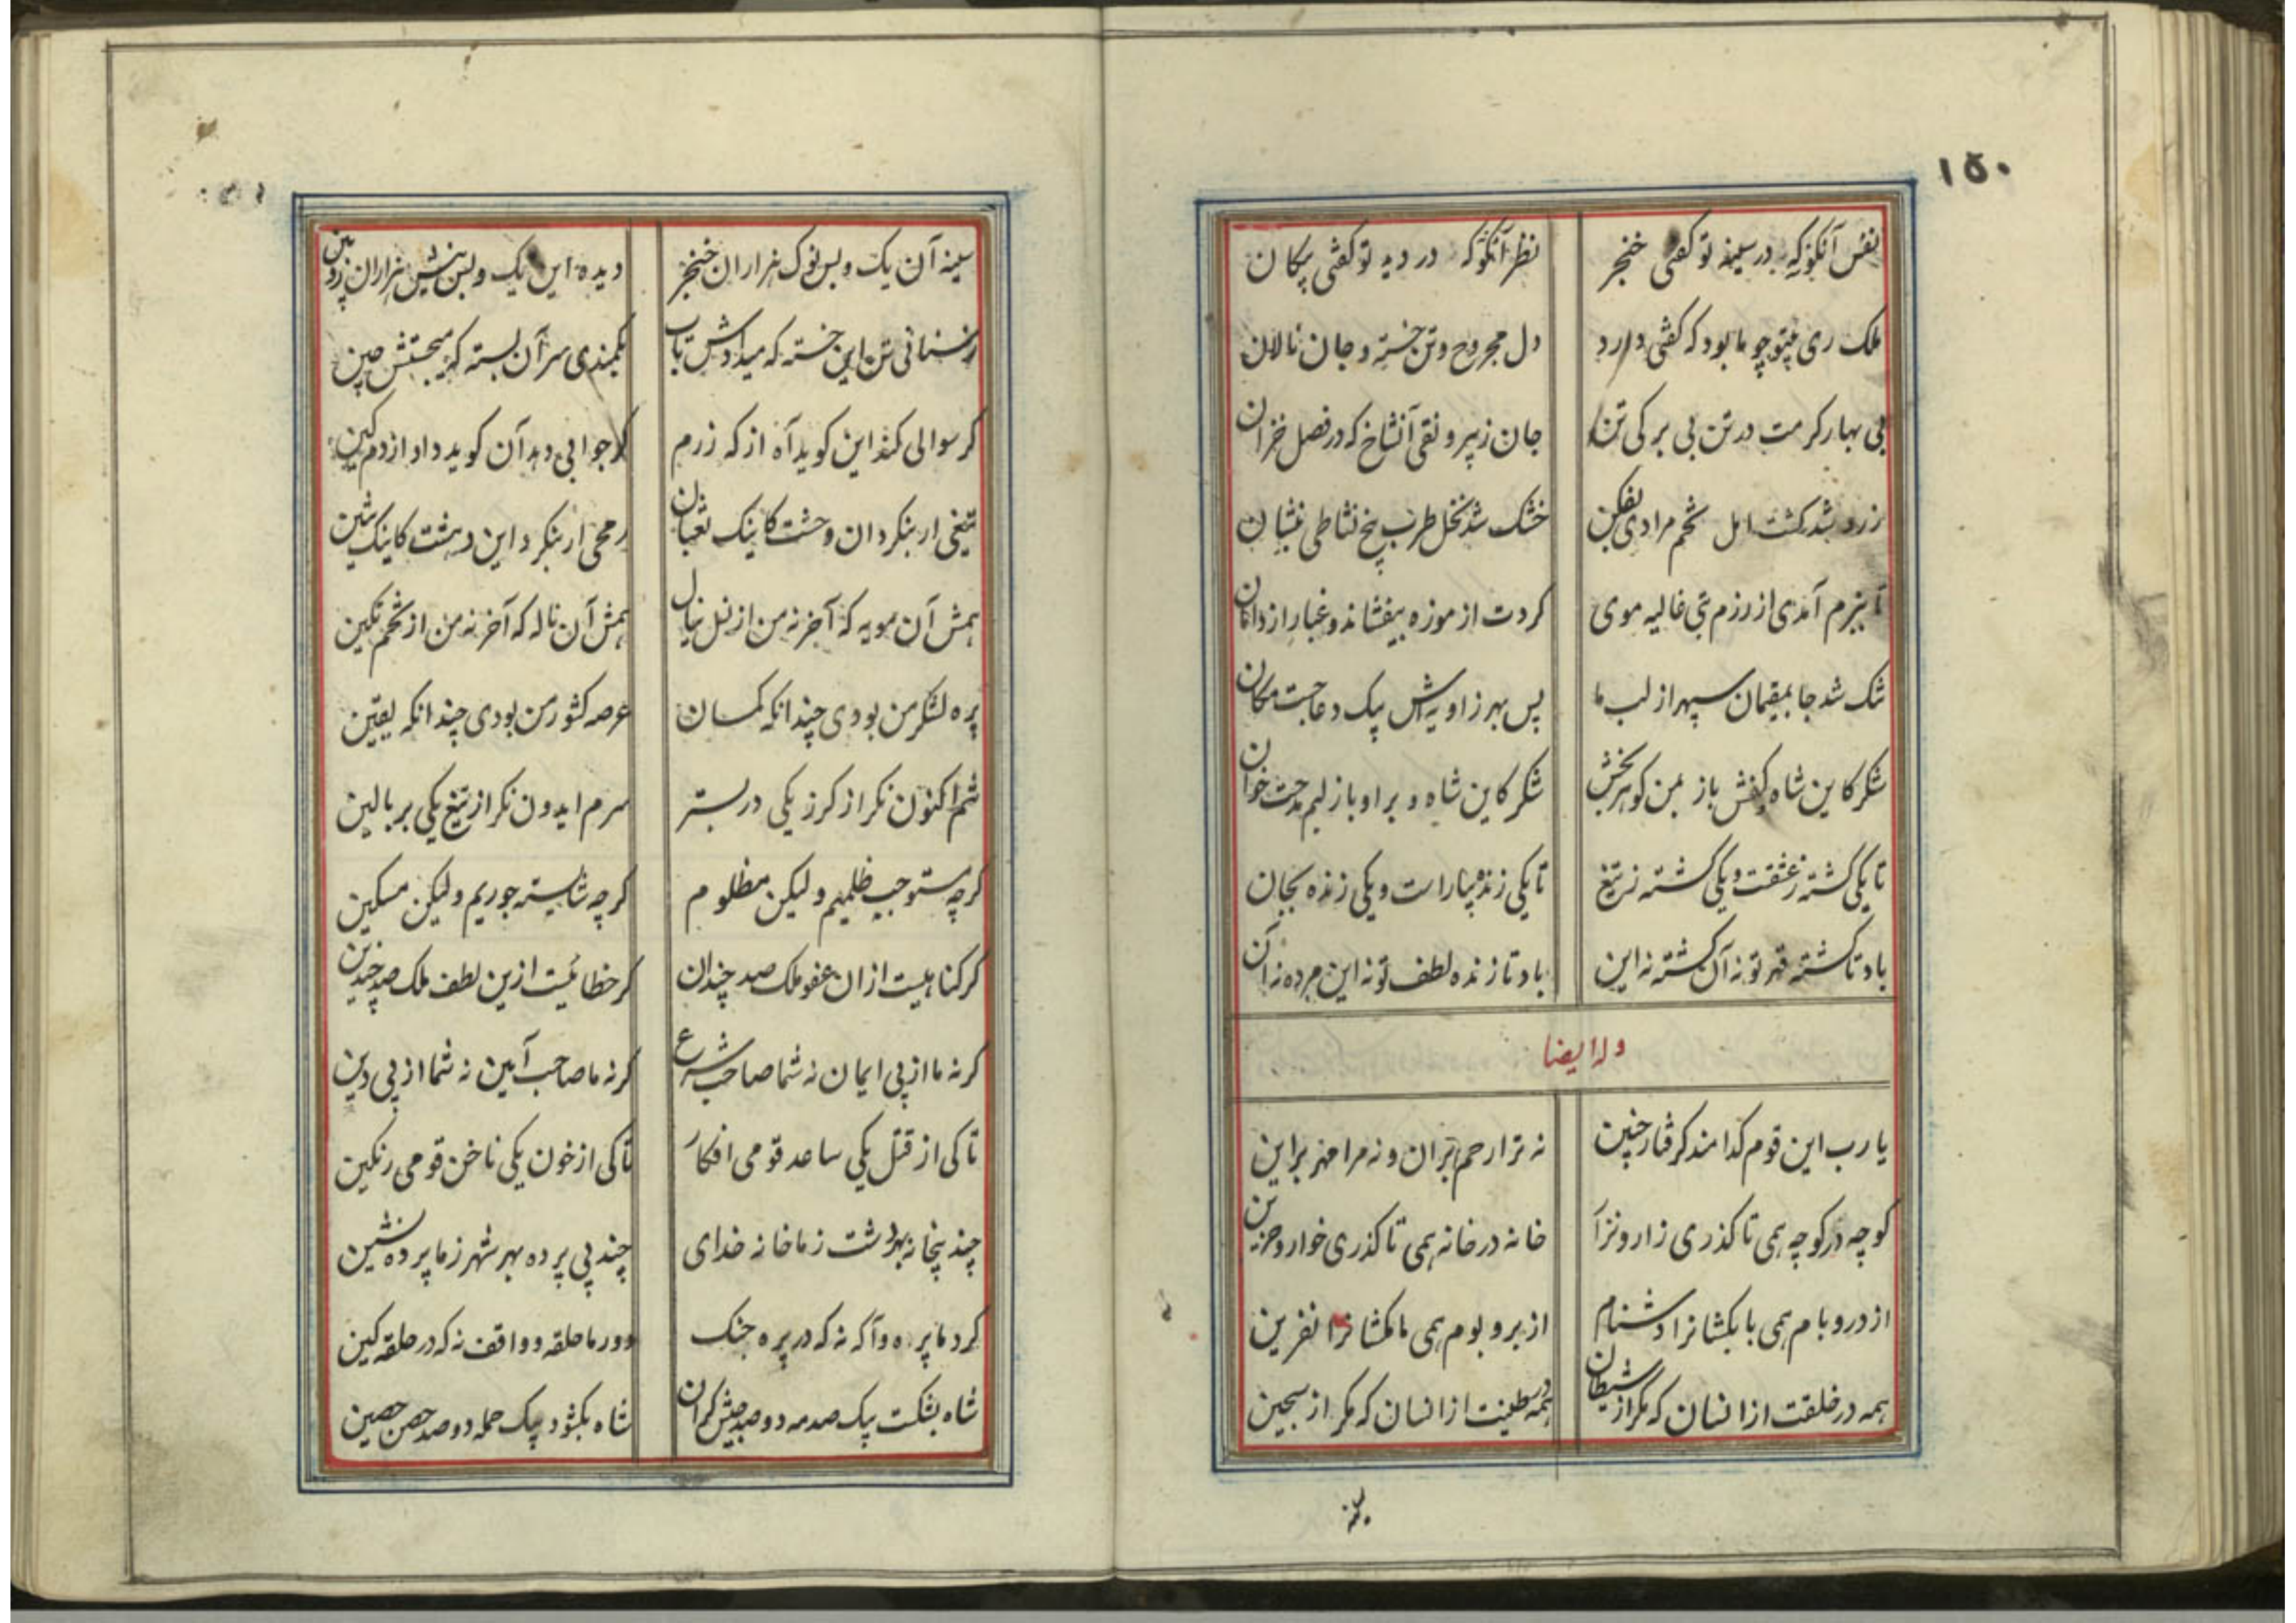 ۱۵۰
نفس آنگونه که در سینه تو کفتی خنجر نظر آنکونه که در دیده تو کفتی پیکان
ملک ری بیتو چو ما بود که کفتی دارد دل مجروح و تن خسته و جان نالان
بی بهار کرمت در تن بی برکی تن جان ز بیرونقی آنشاخ که در فصل خزان
زرد شد کشت امل تخم مرادی بفکن خشک شد نخل طرب بیخ نشاطی بنشان
تا ببزم آمدی از رزم بتی غالیه موی کردت از موزه بیفشاند و غبار از دامان
تنک شد جا بمقیمان سپهر از لب ما پس بهر زاویه اش پیک دعا جست مکان
شکر کاین شاه و کفش باز بمن کوهر بخش شکر کاین شاه و بر او باز لبم مدحت خوان
تا یکی کشته ز عشقت و یکی کشته ز تیغ تا یکی زنده بیار است و یکی زنده بجان
باد تا کشته قهر تو نه آن کشته نه این باد تا زنده لطف تو نه این مرده نه آن
وله ایضا
یا رب این قوم کدامند کرفتار چنین نه ترا رحم بر آن و نه مرا مهر بر این
کوچه در کوچه همی تا کذری زار و نزار خانه در خانه همی تا کذری خوار و حزین
از در و بام همی با بکشانرا دشنام از بر و بوم همی مامکشانرا نفرین
همه در خلقت از انسان که مکر از شیطان همه در طینت از انسان که مکر از سجین
سینه آن یک و بس نوک هزاران خنجر دیده این یک و بس نیش هزاران زوبین
ریسمانی تن این خسته که میدادش تاب بکمندی سر آن بسته که می‌جستش چین
کر سوالی کند این کوید آه از که زرم کر جوابی دهد آن کوید داد از دم کین
تیغی ار بنکرد ان وحشت کاینک ثعبان رمحی ار بنکرد این دهشت کاینک تنین
همش آن مویه که آخر نه من از نسل نیال همش آن ناله که آخر نه من از تخم تکین
پره لشکر من بودی چندانکه کمان عرصه کشور من بودی چندانکه یقین
تنم اکنون نکر از کرز یکی در بستر سرم ایدون نکر از تیغ یکی بر بالین
کرچه مستوجب ظلمیم ولیکن مظلوم کرچه شایسته جوریم ولیکن مسکین
کر کناهیست از ان عفو ملک صد چندان کر خطائیست ازین لطف ملک صد چندین
کر نه ما از پی ایمان نه شما صاحب شرع کر نه ما صاحب آیین نه شما از پی دین
تا کی از قتل یکی ساعد قومی افکار تا کی از خون یکی ناخن قومی رنکین
چند بیخانه بهر دشت ز ما خانه خدای چند بی پرده بهر شهر ز ما پرده نشین
کرد ما پره و آکه نه که در پره جنک دور ما حلقه و واقف نه که در حلقه کین
شاه بشکست بیک صدمه دو صد جیش کران شاه بکشود بیک حمله دو صد حصن حصین